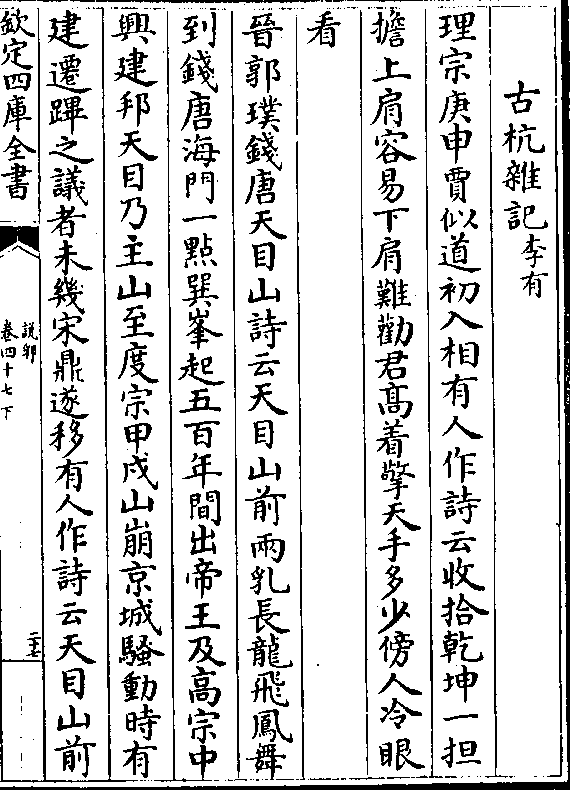 古杭雜記 李有
理宗庚申賈似道初入相有人作詩云收拾乾坤一担
擔上肩容易下肩難勸君髙着擎天手多少傍人冷眼
看
晉郭璞錢唐天目山詩云天目山前兩乳長龍飛鳳舞
到錢唐海門一點巽峯起五百年間出帝王及高宗中
興建邦天目乃主山至度宗甲戌山崩京城騷動時有
建遷蹕之議者未幾宋鼎遂移有人作詩云天目山前
欽定四庫全書
說郛
卷四十七下